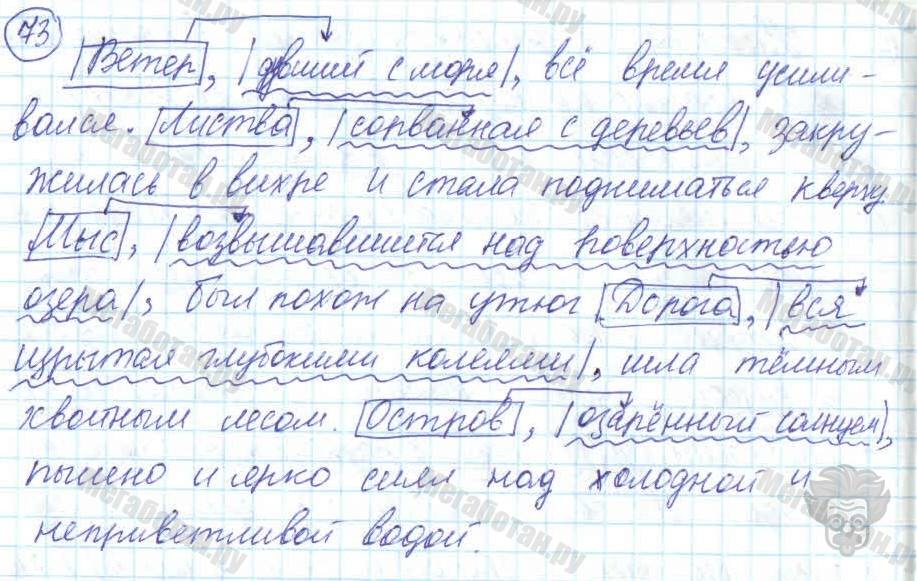 73
|Ветер|, |дувший с моря|, всё время усили-
вался. |Листва|, |сорванная с деревьев|, закру-
жилась в вихре и стала подниматься кверху.
|Мыс|, |возвышавшийся над поверхностью
озера|, был похож на утюг |Дорога|, |вся
изрытая глубокими колеями|, шла тёмным
хвойным лесом. |Остров|, |озарённый солнцем|,
пышно и ярко сиял над холодной и
неприветливой водой.
Мегаботан.ру